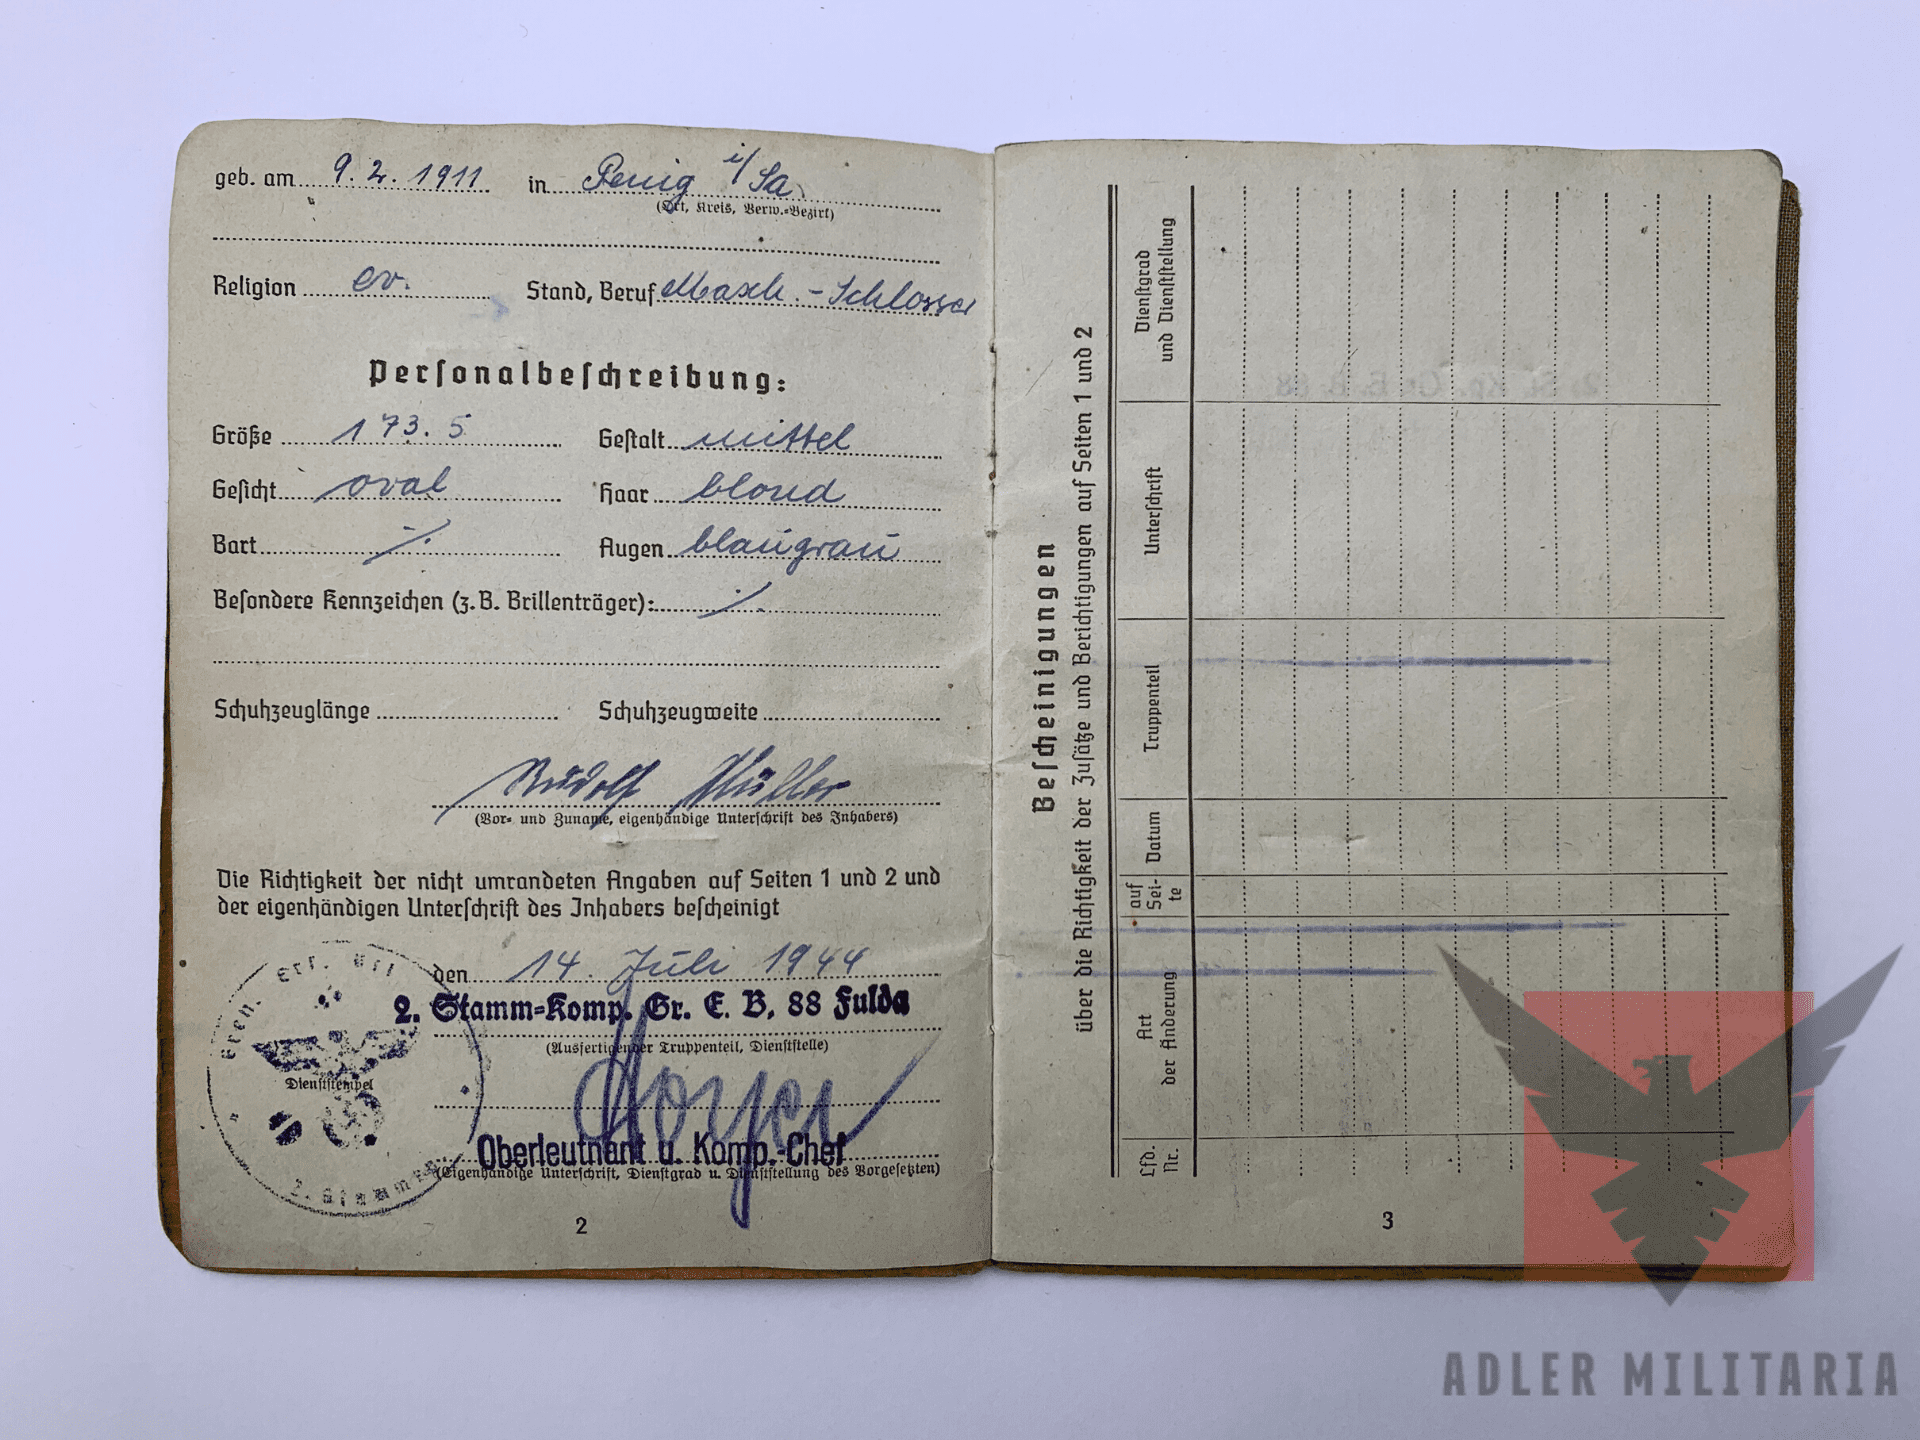 geb. am 9. 2. 1911 in Penig i/Sa
(Ort, Kreis, Verw.=Bezirk)
Religion ev. Stand, Beruf Masch.-Schlosser
Personalbeschreibung:
Größe 173.5 Gestalt mittel
Gesicht oval Haar blond
Bart ./. Augen blaugrau
Besondere Kennzeichen (z.B. Brillenträger): ./.
Schuhzeuglänge Schuhzeugweite
Rudolf Müller
(Vor= und Zuname, eigenhändige Unterschrift des Inhabers)
Die Richtigkeit der nicht umrandeten Angaben auf Seiten 1 und 2 und
der eigenhändigen Unterschrift des Inhabers bescheinigt
den 14. Juli 1944
2. Stamm=Komp. Gr. E. B. 88 Fulda
(Ausfertigender Truppenteil, Dienststelle)
Dienststempel
Oberleutnant u. Komp.-Chef
(Eigenhändige Unterschrift, Dienstgrad u. Dienststellung des Vorgesetzten)
2
Bescheinigungen
über die Richtigkeit der Zusätze und Berichtigungen auf Seiten 1 und 2
Lfd.
Nr.
Art
der Änderung
auf
Sei-
te
Datum
Truppenteil
Unterschrift
Dienstgrad
und Dienststellung
3
ADLER MILITARIA